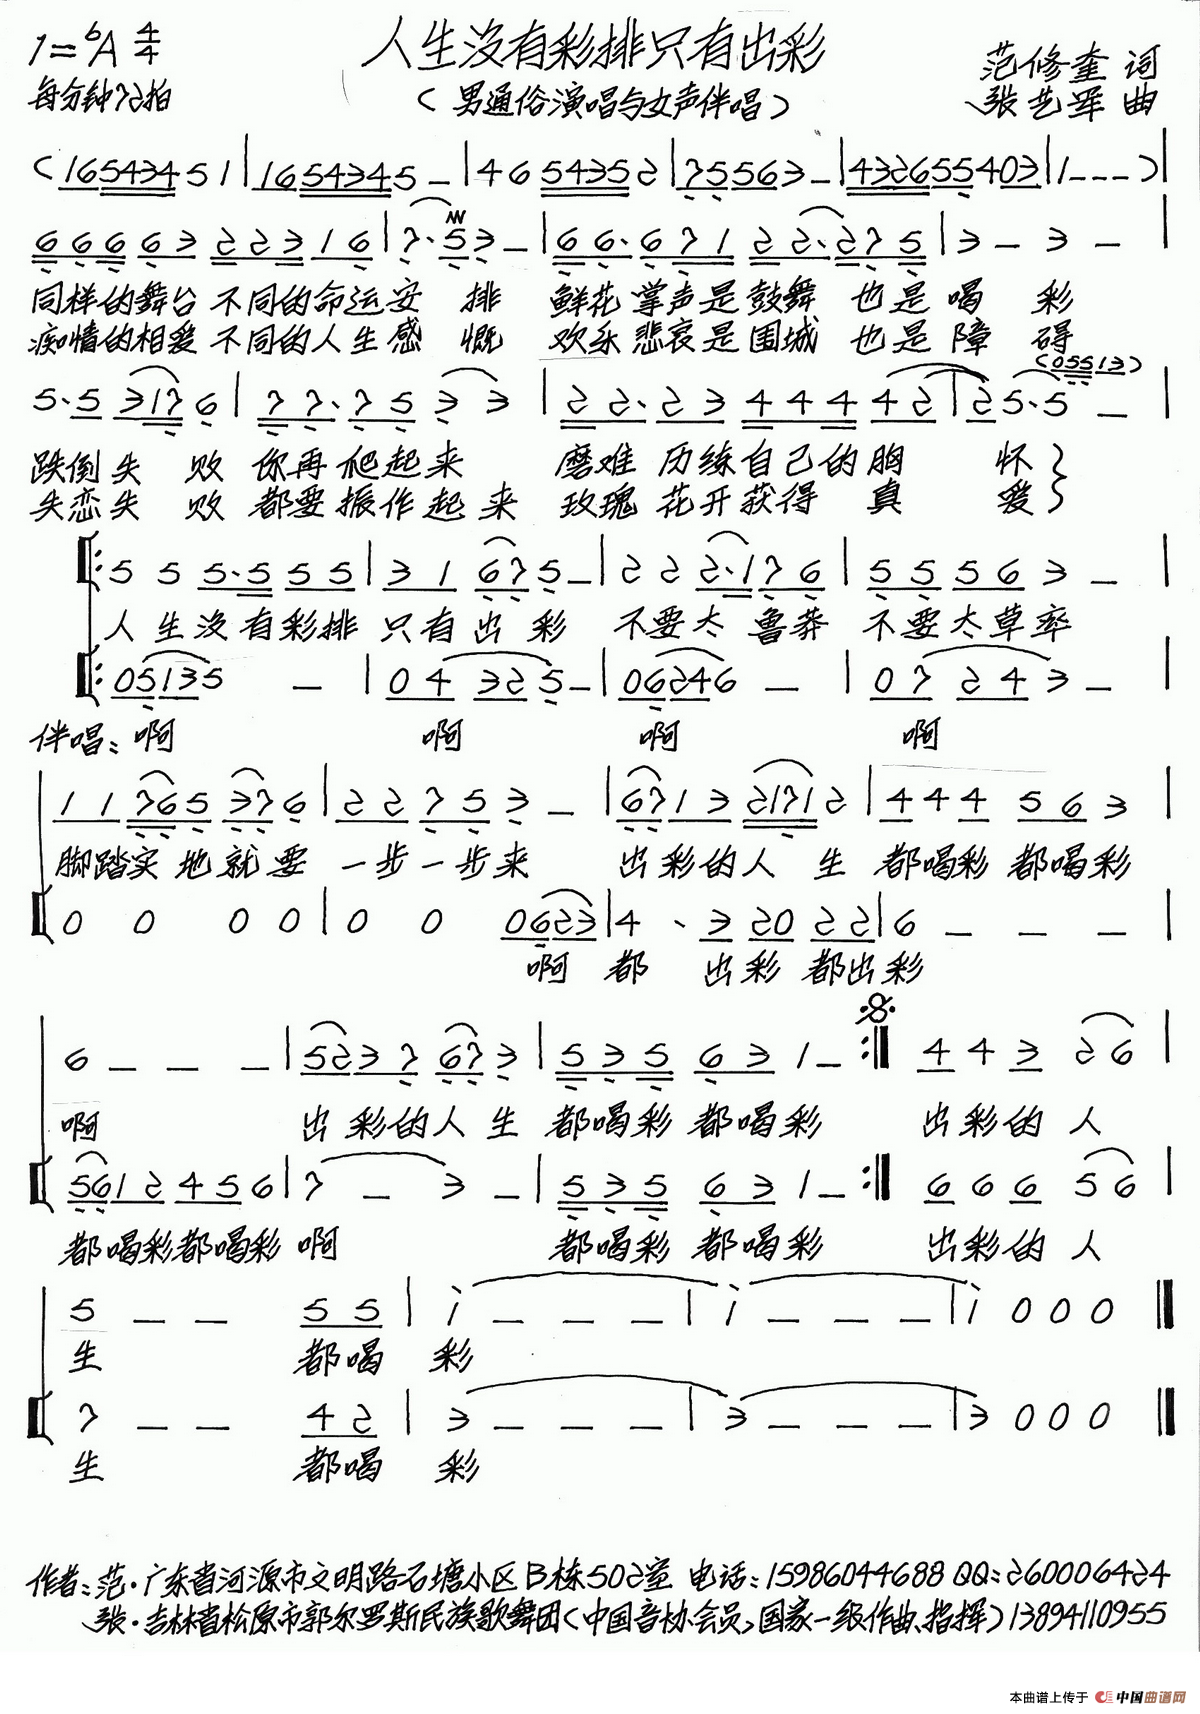 人生没有彩排只有出彩
1=ᵇA 4/4
每分钟72拍
(男通俗演唱与女声伴唱)
范修奎 词
张艺军 曲
(16543451|1654345–|4654352|755563–|432655403|1---)|
66663 223 16|7·53–|66·671 22·275|3–3–|
同样的舞台 不同的命运安 排 鲜花掌声是鼓舞 也是喝 彩
痴情的相爱 不同的人生感 慨 欢乐悲哀是围城 也是障 碍
(05513)
5·5 317 6|77·75 33|22·23 444 42|25·5–|
跌倒失 败 你再爬起来 磨难 历练自己的胸 怀
失恋失 败 都要振作起来 玫瑰 花开获得 真 爱
5 5 5·5 55|31 67 5–|22 2·17 6|55 56 3–|
人生没有彩排 只有出彩 不要太鲁莽 不要太草率
05135 –|04 32 5–|06246 –|07 24 3–|
伴唱:啊 啊 啊 啊
11 765 37 6|22 75 3–|6713 21712|444 56 3|
脚踏实 地就要 一步一步来 出彩的人 生 都喝彩 都喝彩
0 0 0 0|0 0 0623|4 · 3 20 22|6 – – –|
啊 都 出彩 都出彩
6 – – –|5237 67 3|535 63 1–:‖ 443 26|
啊 出彩的人 生 都喝彩 都喝彩 出彩的 人
5612 456|7 – 3 –|535 63 1–:‖ 666 56|
都喝彩都喝彩 啊 都喝彩 都喝彩 出彩的 人
5 – – 55|i – – –|i – – –|i 0 0 0‖
生 都喝 彩
7 – – 42|3 – – –|3 – – –|3 0 0 0‖
生 都喝 彩
作者:范·广东省河源市文明路石塘小区B栋502室 电话:15986044688 QQ:260006424
张·吉林省松原市郭尔罗斯民族歌舞团(中国音协会员,国家一级作曲、指挥)13894110955
本曲谱上传于 中国曲谱网